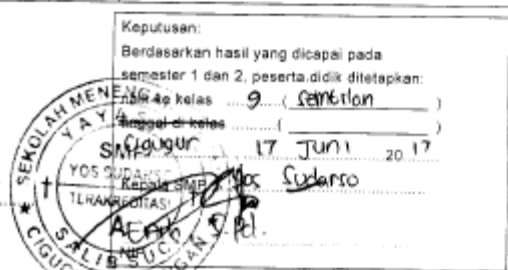 Keputusan:
Berdasarkan hasil yang dicapai pada
semester 1 dan 2, peserta didik ditetapkan:
naik ke kelas 9 ( sembilan )
tinggal di kelas ( )
Cigugur 17 Juni 20 17
Kepala SMP Yos Sudarso
S.Pd.
NIP
SEKOLAH MENENG
YAYAS
SMP
YOS SUDARSO
TERAKREDITASI
SALIB SUCI
CIGUGU